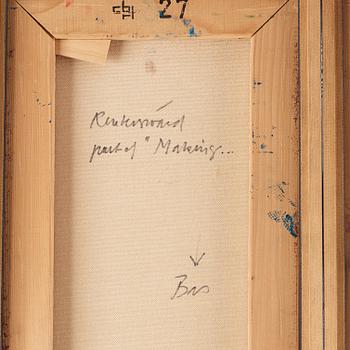 27
Reuterswärd
part of "Making...